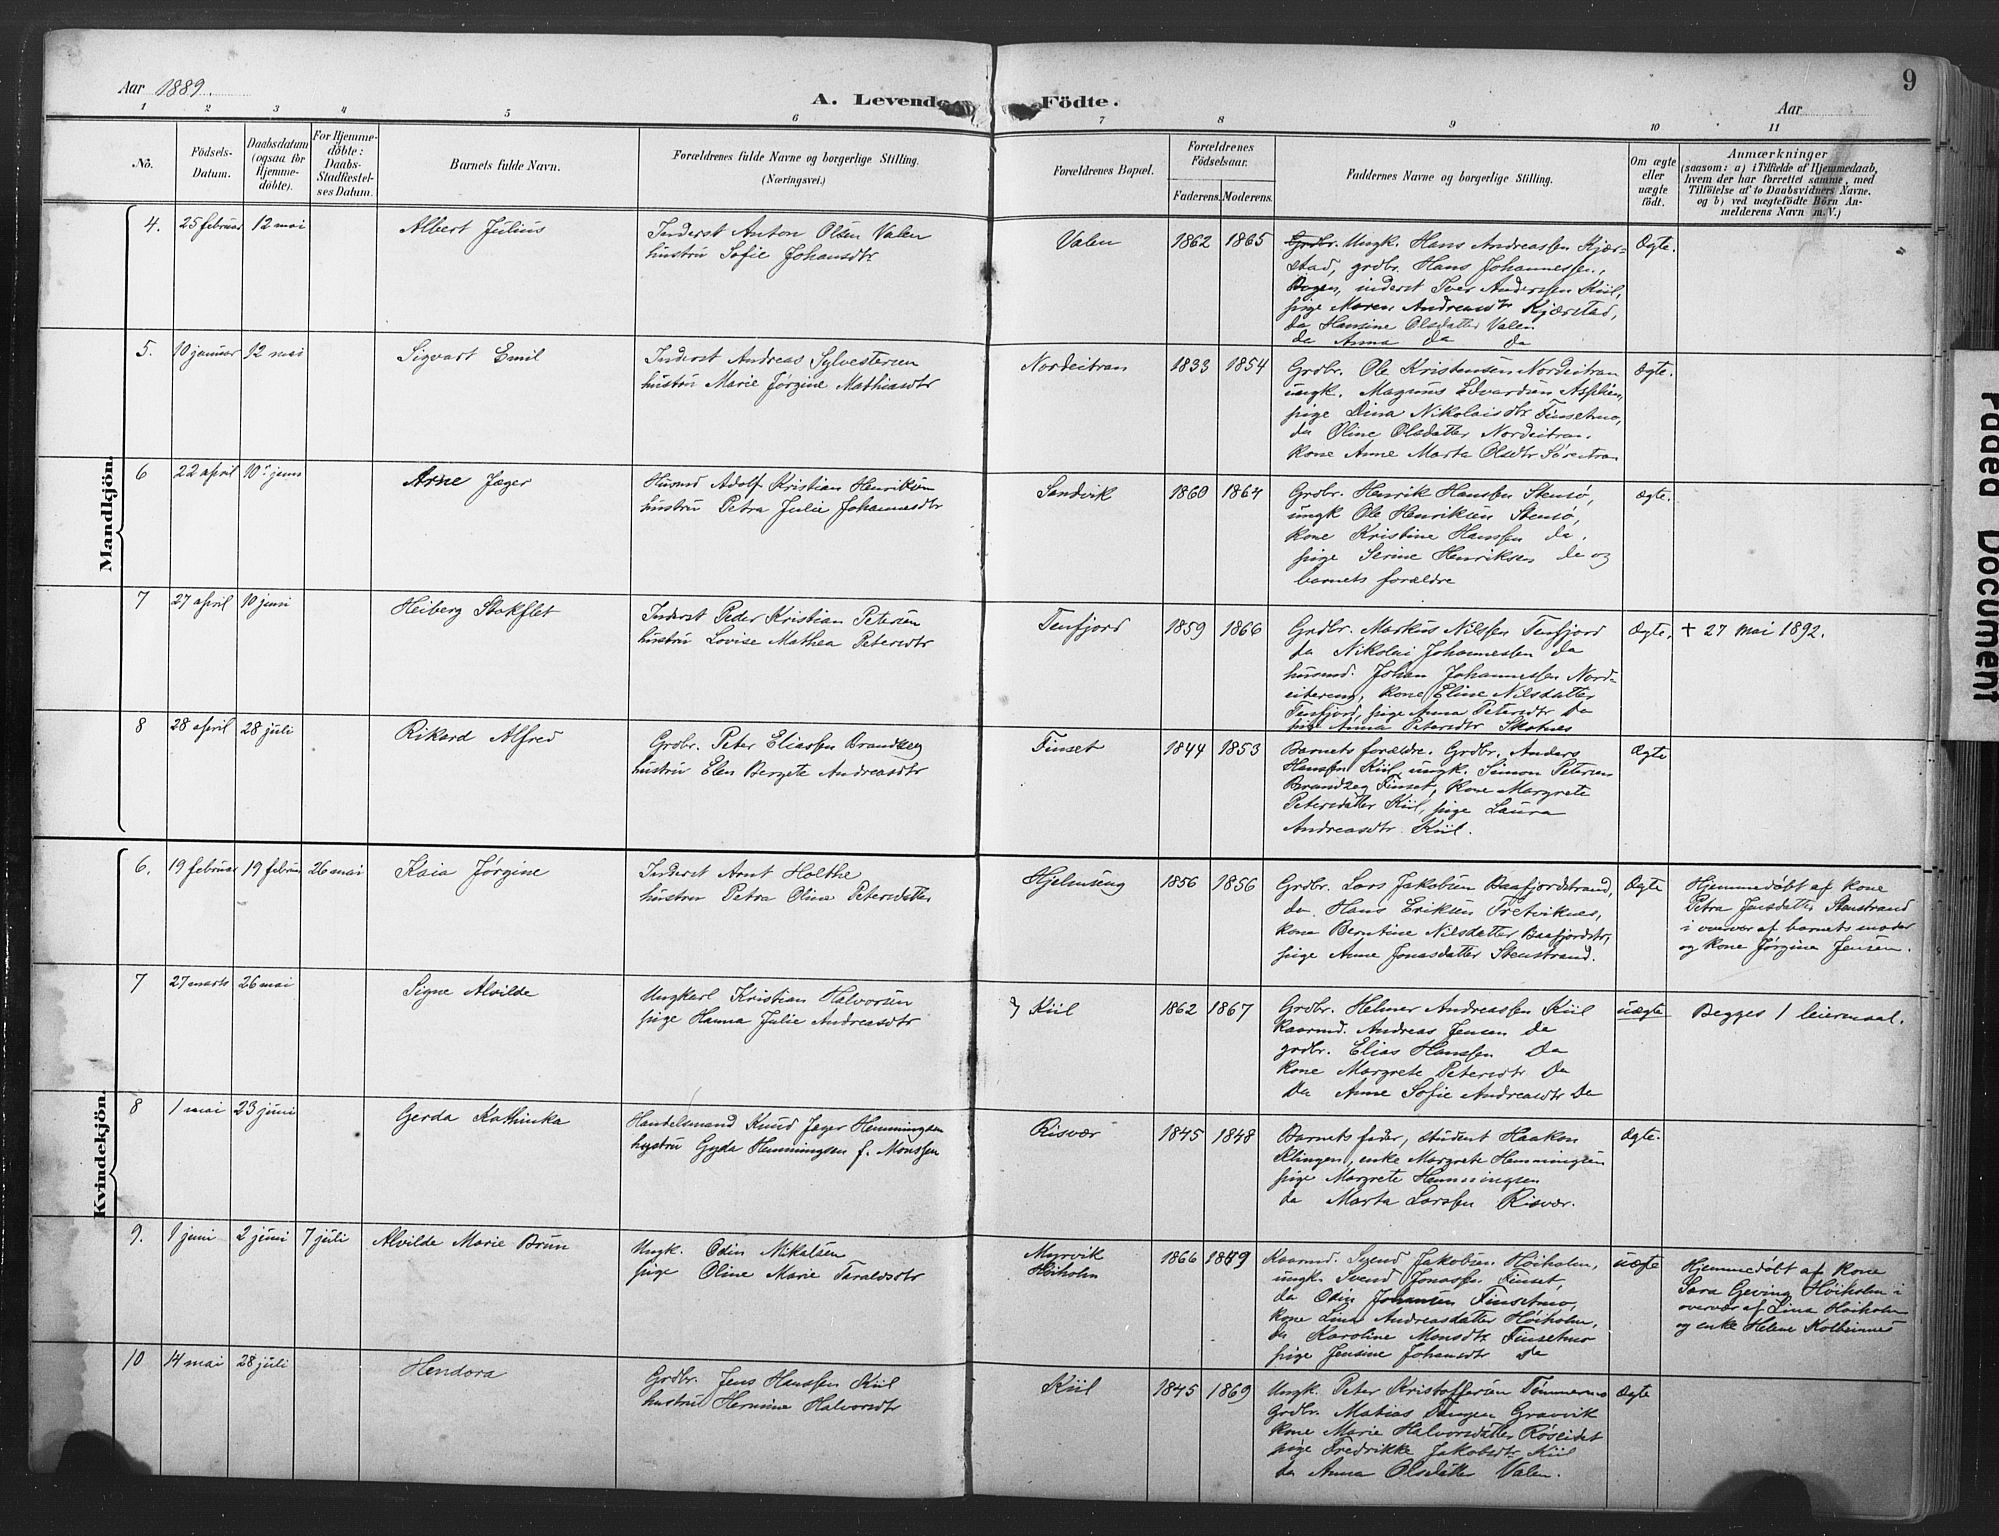 Aar 1889.
A. Levende Födte.
Aar
9
1 2 3 4 5 6 7 8 9 10 11
No.
Födsels-
Datum.
Daabsdatum
(ogsaa for
Hjemme-
döbte).
For Hjemme-
döbte:
Daabs-
Stadfæstel-
ses Datum.
Barnets fulde Navn.
Forældrenes fulde Navne og borgerlige Stilling.
(Næringsvei.)
Forældrenes Bopæl.
Forældrenes
Födselsaar.
Faderens. Moderens.
Faddernes Navne og borgerlige Stilling.
Om ægte
eller
uægte
födt.
Anmærkninger
(saasom: a) i Tilfælde af Hjemmedaab,
hvem der har forrettet samme, med
Tilföielse af to Daabsvidners Navne.
og b) ved uægtefödte Börn An-
melderens Navn m. V.)
Mandkjön.
4. 25 februar 12 mai
Albert Julius
Inderst Anton Olsen Valen
hustru Sofie Johansdtr
Valen
1862 1865
Grdbr. Ungk. Hans Andreassen Kjær-
stad, grdbr. Hans Johannessen,
Bogen, inderst Iver Anderssen Kiil,
pige Maren Andreasdtr Kjærstad,
da Hansine Olsdatter Valen
da Anna da da
Ægte.
5. 10 januar 12 mai
Sigvart Emil
Inderst Andreas Sylvestersen
hustru Marie Jørgine Mathiasdtr
Nordeitran
1833 1854
Grdbr. Ole Kristensen Nordeitran
ungk. Magnus Edvardsen Asplien,
pige Dina Nikolaisdtr Finsetmo,
da Oline Olsdatter Nordeitran.
kone Anne Marta Olsdtr Søreitran
Ægte.
6 22 april 10 juni
Arne Jæger
Husmd Adolf Kristian Henriksen
hustru Petra Julie Johannesdtr
Sandvik
1860 1864
Grdbr. Henrik Hanssen Stensø,
ungk Ole Henriksen Stensø,
kone Kristine Hanssen da.
pige Serine Henriksen da og
barnets forældre
Ægte.
7 27 april 10 juni
Heiberg Stokflet
Inderst Peder Kristian Petersen
hustru Lovise Mathea Petersdtr
Tenfjord
1859 1866
Grdbr. Markus Nilssen Tenfjord
da Nikolai Johannessen da
husmd. Johan Johannessen Nord-
eitran, kone Eline Nilsdatter
Tenfjord, pige Anna Petersdtr Da
pige Anna Petersdtr Skotnes
Ægte.
+ 27 mai 1892.
8 28 april 28 juli
Rikard Alfred
Grdbr. Peter Eliassen Brandzeg
hustru Elen Bergete Andreasdtr
Finset
1844 1853
Barnets forældre. Grdbr. Anders
Hanssen Kiil, ungk. Simon Petersen
Brandzeg Finset, kone Margrete
Petersdatter Kiil, pige Laura
Andreasdtr. Kiil.
Ægte
Kvindekjön.
6. 19 februar 19 februar 26 mai
Kaia Jørgine
Inderst Arnt Holthe
hustru Petra Olina Petersdatter
Hjelmseng
1856 1856
Grdbr. Lars Jakobsen Baafjordstrand,
da Hans Eriksen Tretviknes,
kone Berntine Nilsdatter Baafjordstr,
pige Anne Jonasdatter Stenstrand.
Ægte
Hjemmedøbt af kone
Petra Jensdatter Stenstrand
i overvær af barnets moder
og kone Jørgine Jensen.
7 27 marts 26 mai
Signe Alvilde
Ungkarl Kristian Halvorsen
pige Hanna Julie Andreasdtr
Kiil
1862 1867
Grdbr. Helmer Andreassen Kiil
kaarmd. Andreas Jensen da
grdbr. Elias Hanssen Da
kone Margrete Petersdtr Da
Da Anne Sofie Andreasdtr Da
uægte
Begges 1 leiermaal.
8 1 mai 23 juni
Gerda Kathinka
Handelsmand Knud Jæger Hemmingsen
hustru Gyda Hemmingsen f. Monssen
Risvær
1845 1848
Barnets fader, student Haakon
Klingen, enke Margrete Hemmingsen
pige Margrete Hemmingsen
da Marta Larssen Risvær.
Ægte.
9. 1 juni 2 juni 7 juli
Alvilde Marie Brun
Ungk. Odin Nikolsen
pige Oline Marie Taraldsdtr
Myrvik
Høiholm
1866 1849
Kaarmd. Svend Jakobsen Høiholm,
ungk. Svend Jonassen Finset,
da Odin Johansen Finsetmo,
kone Lina Andreasdatter Høiholm,
da Karoline Monsdtr Finsetmo
pige Jensine Johansdtr Da
uægte
Hjemmedøbt af kone
Sara Geving Høiholm i
overvær af Lina Høiholm
og enke Helene Kolbeinnes
10 14 mai 28 juli
Hendora
Grdbr. Jens Hanssen Kiil
hustru Hermine Halvorsdtr
Kiil
1845 1869
Ungk. Peter Kristoffersen Tømmermo
Grdbr. Matias Gravvik
kone Marie Halvorsdatter Røseidet
pige Fredrikke Jakobsdtr Kiil
da Anna Olsdatter Valen.
Ægte
Faded Document